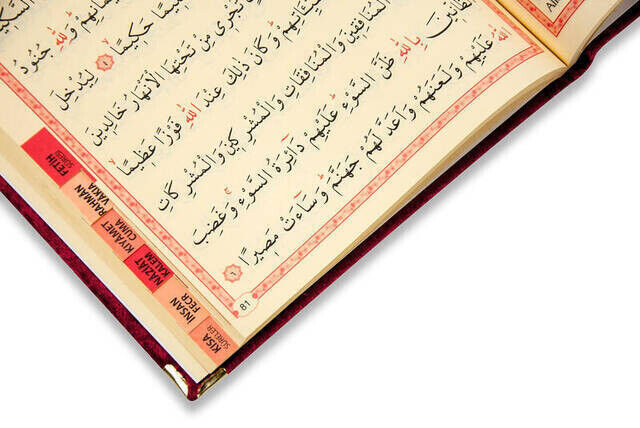 وَلِلّٰهِ جُنُودُ
حَكِيمًا ٤ لِيُدْخِلَ
تَجْرِى مِنْ تَحْتِهَا الْاَنْهَارُ خَالِدِينَ
وَكَانَ ذٰلِكَ عِنْدَ اللّٰهِ فَوْزًا عَظِيمًا
الْمُنَافِقِينَ وَالْمُنَافِقَاتِ وَالْمُشْرِكِينَ وَالْمُشْرِكَاتِ
بِاللّٰهِ ظَنَّ السَّوْءِ عَلَيْهِمْ دَائِرَةُ السَّوْءِ وَغَضِبَ
اللّٰهُ عَلَيْهِمْ وَلَعَنَهُمْ وَاَعَدَّ لَهُمْ جَهَنَّمَ وَسَاءَتْ مَصِيرًا ٦
81
FETİH
SURESİ
RAHMAN
VAKIA
KIYAMET
CUMA
NAZİAT
KALEM
İNSAN
FECR
KISA
SURELER